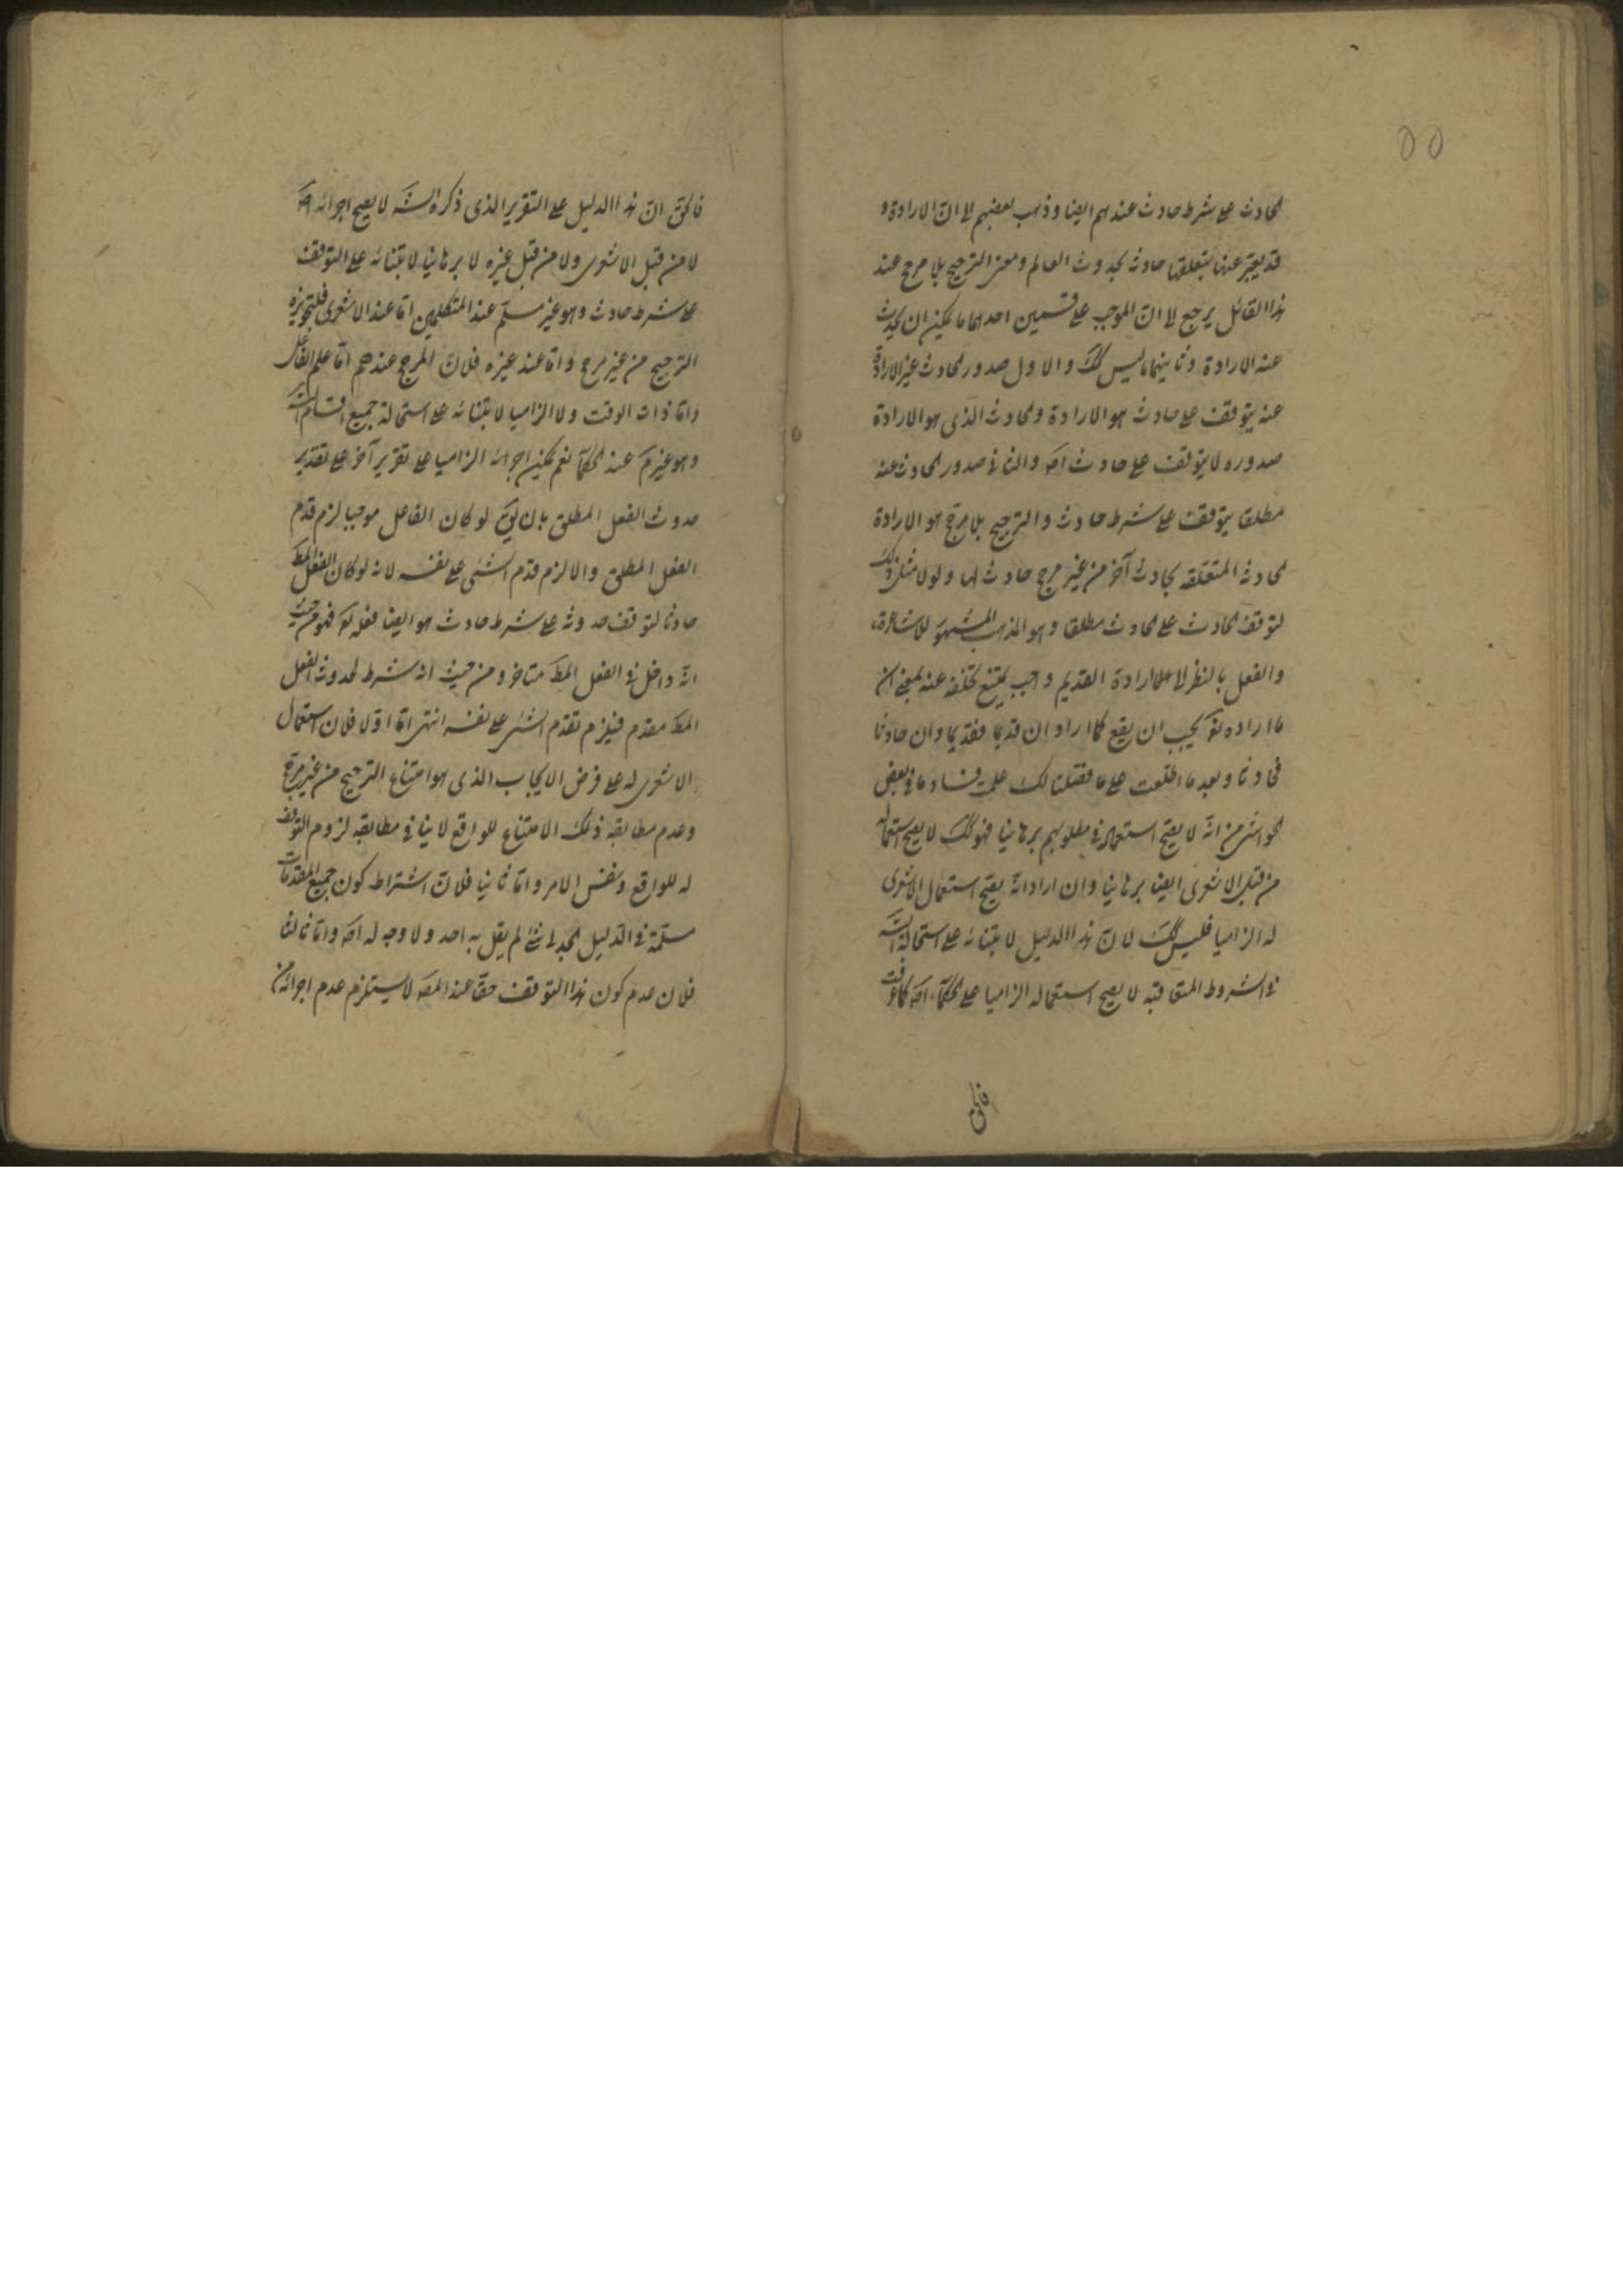 ۵۵
الحادث على شرط حادث عندهم ايضا وذهب بعضهم الى ان الارادة و
قد يعبر عنها بتعلقها حادثة بحدوث العالم ومعنى الترجيح بلا مرجح عند
هذا القائل يرجع الى ان الموجب على قسمين احدهما ما يمكن ان يحدث
عنه الارادة وثانيهما ما ليس كك والاول صدور الحادث غير الارادة
عنه يتوقف على حادث هو الارادة والحادث الذى هو الارادة
صدوره لا يتوقف على حادث اصَ والثانى صدور الحادث عنه
مطلقا يتوقف على شرط حادث والترجيح بلا مرجح هو الارادة
الحادثة المتعلقة بحادث آخر من غير مرجح حادث لها ولولا مثل ذلك
لتوقف الحادث على الحادث مطلقا وهو المذهب المشهور للاشاعرة
والفعل بالنظر الى الارادة القديم واجب يمتنع تخلفه عنه بمعنى ان
ما اراده تعَ يجب ان يقع كما اراد ان قديما فقديما وان حادثا
فحادثا وبعد ما اطلعت على ما فصلنا لك علمت فساد ما فى بعض
الحواشى من انه لا يصح استعماله فى مطلوبهم برهانيا فهو كك لا يصح استعماله
من قبل الاشعرى ايضا برهانيا وان اراد انه يصح استعمال الاشعرى
له الزاميا فليس كك لان هذا الدليل لابتنائه على استحالة التسَ
فى الشروط المتعاقبة لا يصح استعماله الزاميا على الحكماء اصَ كما عرفت
فالحق
فالحق ان هذا الدليل على التقرير الذى ذكره الشَ لا يصح اجرائه اصَ
لا من قبل الاشعرى ولا من قبل غيره لا برهانيا لابتنائه على التوقف
على شرط حادث وهو غير مسلم عند المتكلمين اما عند الاشعرى فلتجويزه
الترجيح من غير مرجح واما عند غيره فلان المرجح عندهم اما علم الفاعل
واما ذات الوقت ولا الزاميا لابتنائه على استحالة جميع اقسام التسَ
وهو غير مَ عند الحكماء نعم يمكن اجرائه الزاميا على تقرير آخر على تقدير
حدوث الفعل المطلق بان يقَ لو كان الفاعل موجبا لزم قدم
الفعل المطلق والا لزم قدم الشئ على نفسه لانه لو كان الفعل المطَ
حادثا لتوقف حدوثه على شرط حادث هو ايضا فعله تعَ فهو من حيث
انه داخل فى الفعل المطَ متاخر ومن حيث انه شرط لحدوث الفعل
المطَ مقدم فيلزم تقدم الشئ على نفسه انتهى اما اولا فلان استعمال
الاشعرى له على فرض الايجاب الذى هو امتناع الترجيح من غير مرجح
وعدم مطابقة ذلك الامتناع للواقع لا ينافى مطابقة لزوم التوقف
له للواقع ونفس الامر واما ثانيا فلان اشتراط كون جميع المقدمات
مسلمة فى الدليل الجدلى شئ لم يقل به احد ولا وجه له اصَ واما ثالثا
فلان عدم كون هذا التوقف حقا عند المصَ لا يستلزم عدم اجرائه من